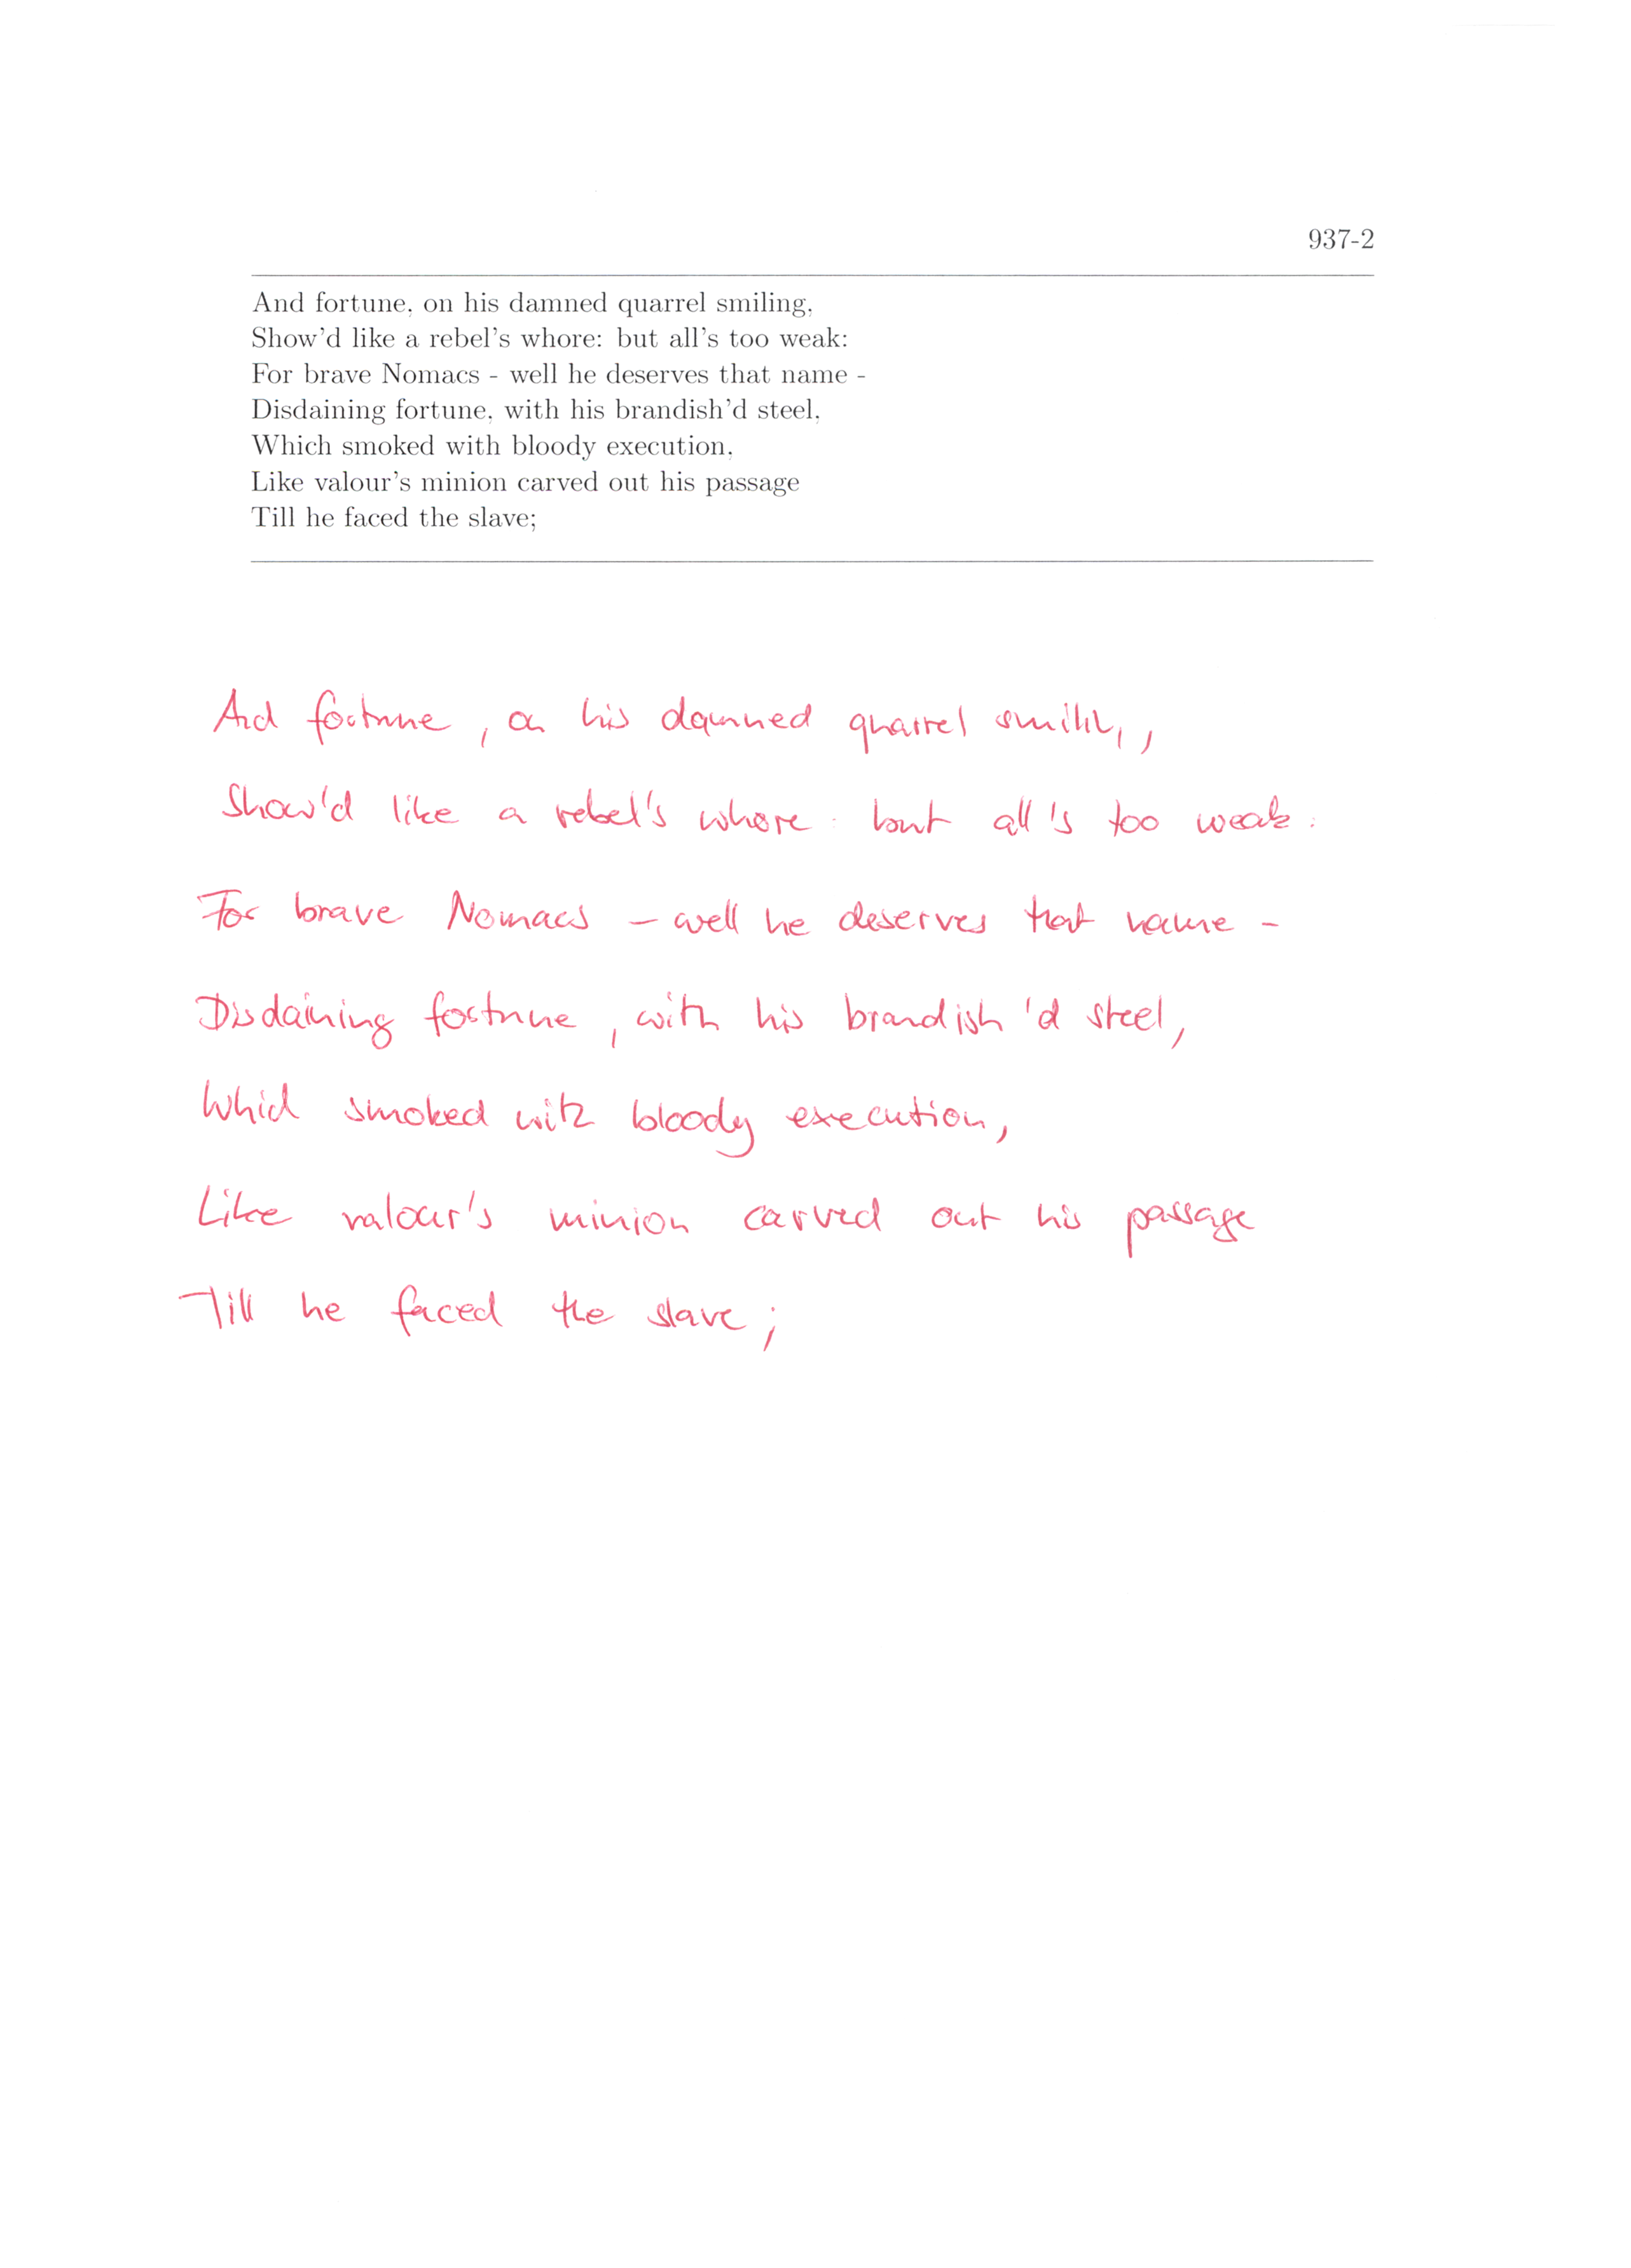 937-2
And fortune, on his damned quarrel smiling,
Show'd like a rebel's whore: but all's too weak:
For brave Nomacs - well he deserves that name -
Disdaining fortune, with his brandish'd steel,
Which smoked with bloody execution,
Like valour's minion carved out his passage
Till he faced the slave;
And fortune, on his damned quarrel smiling,
Show'd like a rebel's whore: but all's too weak:
For brave Nomacs - well he deserves that name -
Disdaining fortune, with his brandish'd steel,
Which smoked with bloody execution,
Like valour's minion carved out his passage
Till he faced the slave;